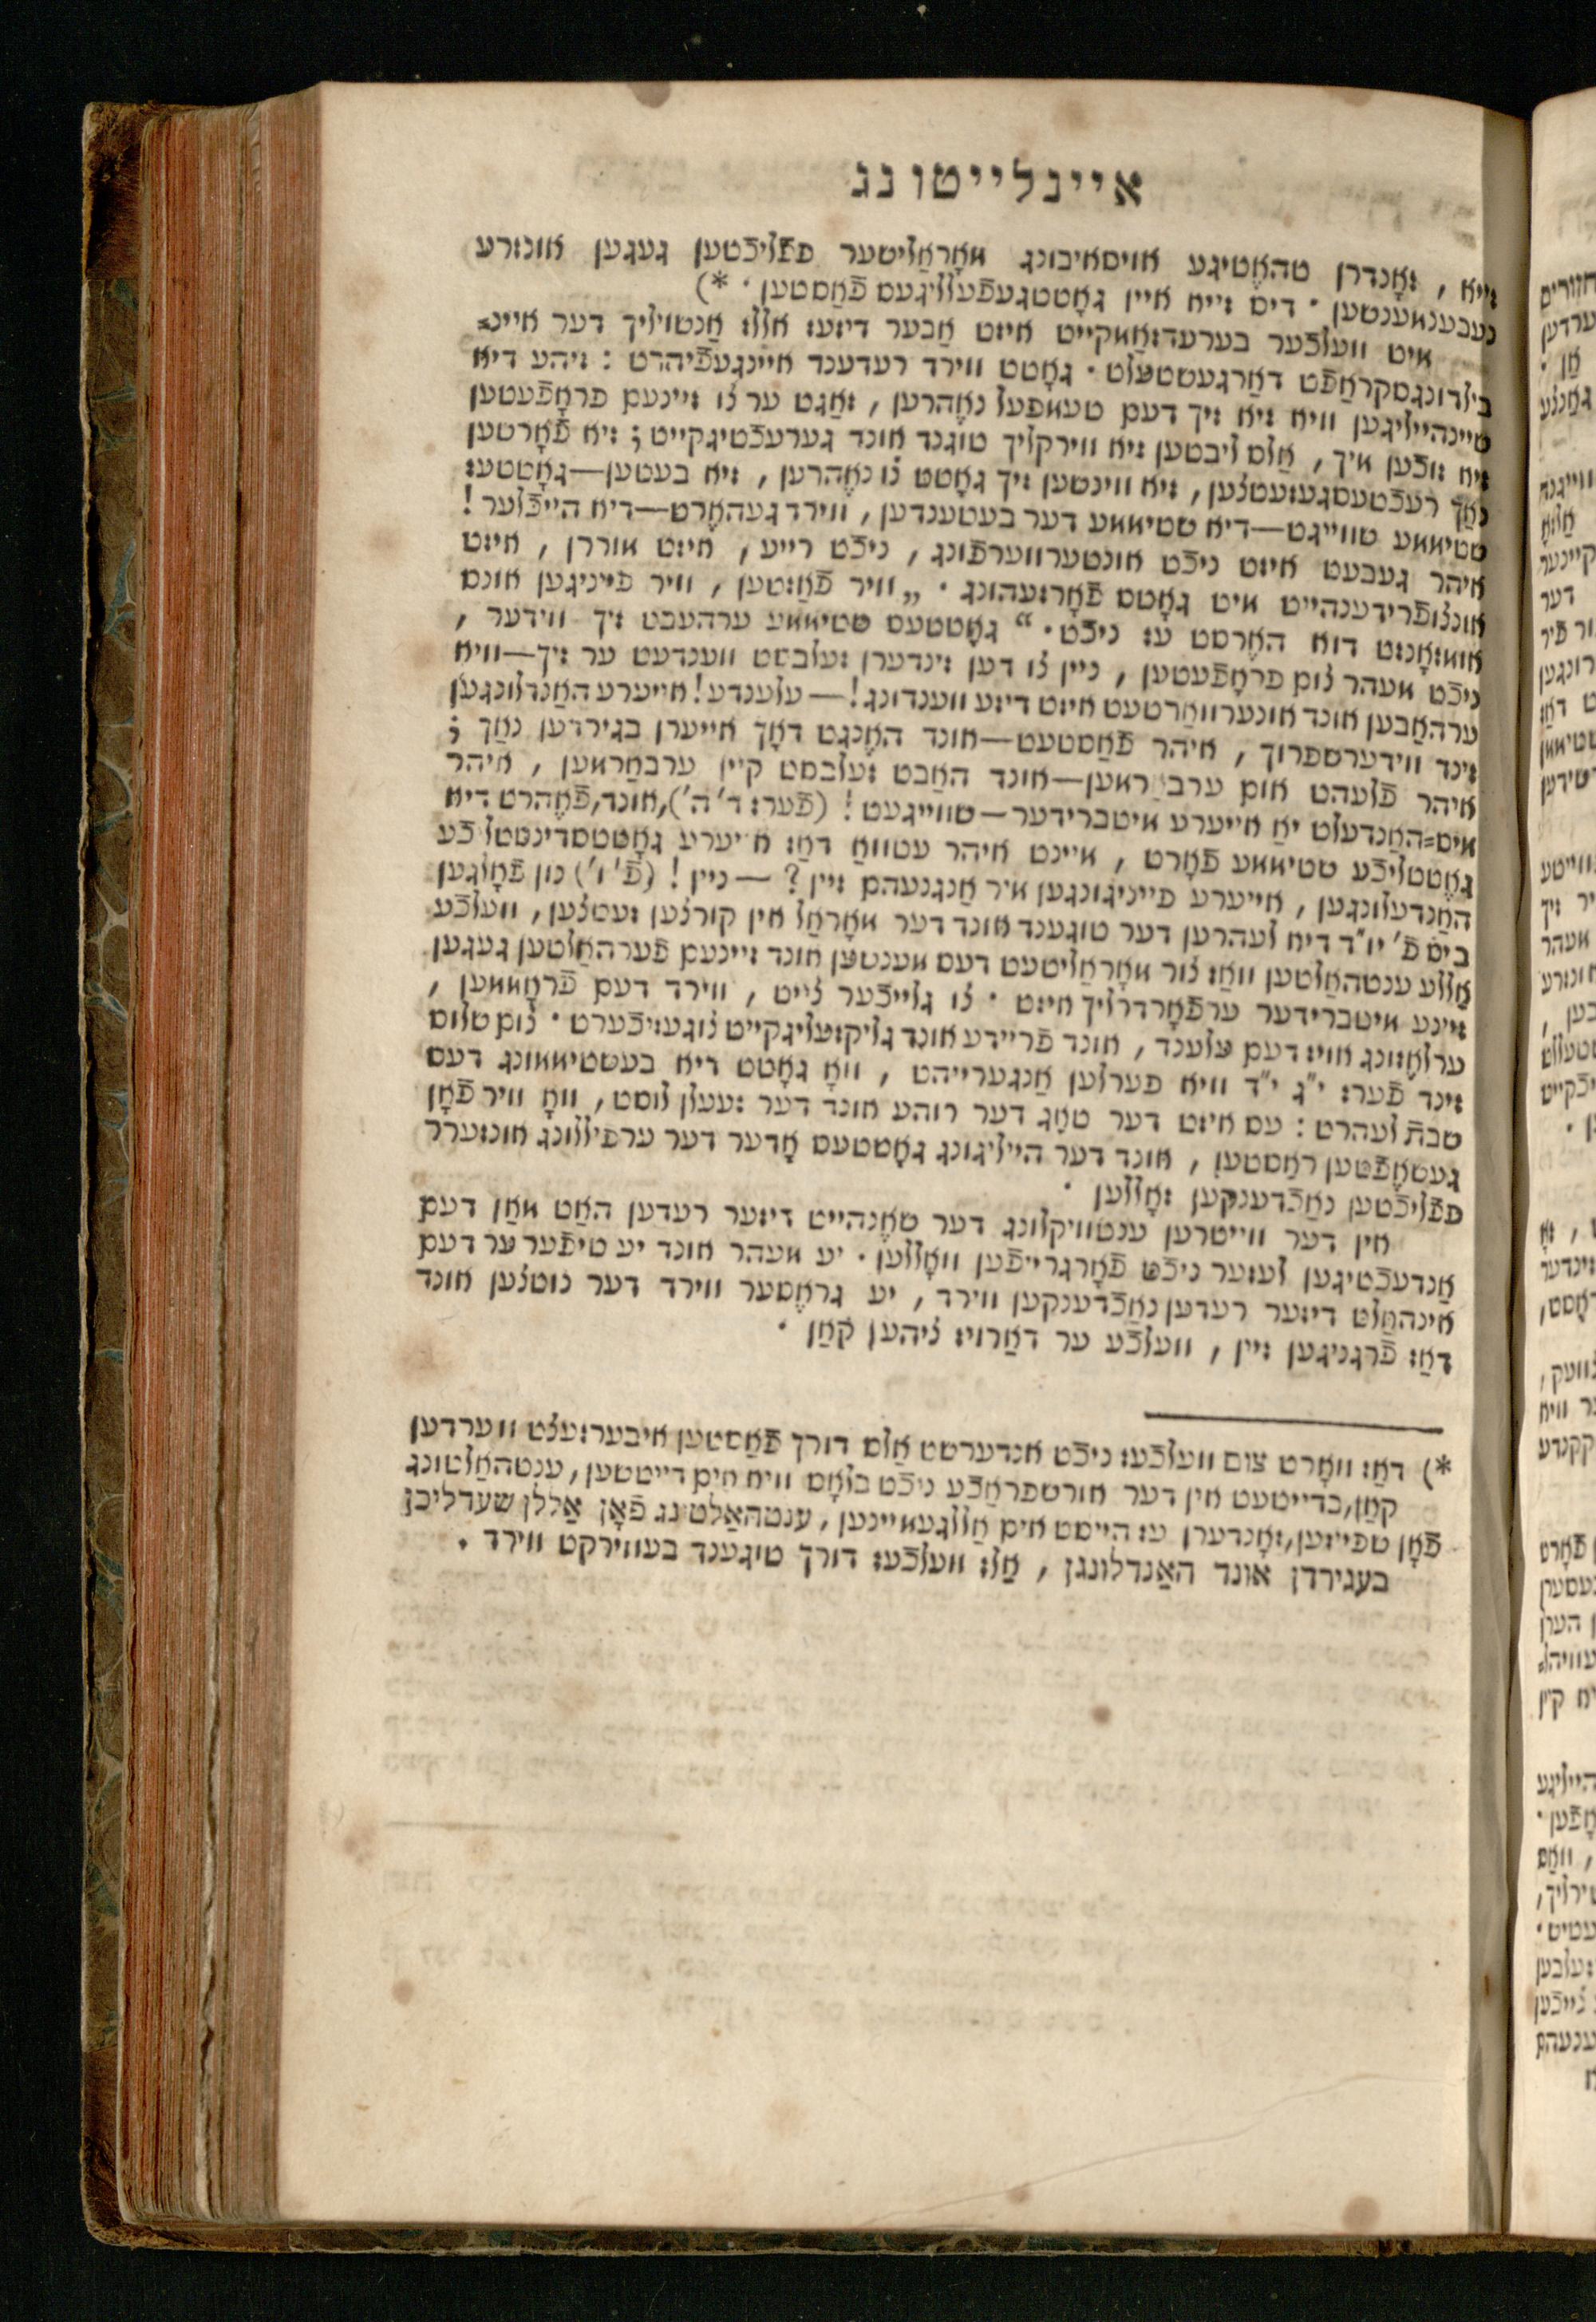 איינלייטונג
זייא , זאָנדרן טהאֶטיגע אויסאיבונג מאָראַליטער פפֿליכֿטען געגען אונזרע
נעבענמענטען . דיס זייא איין גאָטטגעפֿעלליגעס פֿאַסטען . *)
מיט וועלכֿער בערעדזאַמקייט איזט אַבער דיזעז אללז אַנטויליך דער איינ=
בילדונגסקראַפֿט דאַרגעשטעלט . גאָטט ווירד רעדענד איינגעפֿיהרט : זיהע דיא
שיינהייליגען וויא זיא זיך דעם טעמפעל נאֶהרען , זאַגט ער צו זיינעם פראָפֿעטען
זיא זוכֿען מיך , אַלס ליבטען זיא ווירקליך טוגנד אונד גערעכֿטיגקייט ; זיא פֿאָרטען
נאַך רעכֿטעסגעזעטצען , זיא ווינשען זיך גאָטט צו נאֶהרען , זיא בעטען—גאָטטעז
שטיממע שווייגט—דיא שטיממע דער בעטענדען , ווירד געהאֶרט—דיא הייכֿלער !
איהר געבעט איזט ניכֿט אונטערווערפֿונג , ניכֿט רייע , איזט מוררן , איזט
אונצופֿרידענהייט מיט גאָטס פֿאָרזעהונג . „ וויר פֿאַזטען , וויר פייניגען אונס
אומזאָנזט דוא האֶרסט עז ניכֿט . “ גאָטטעס שטיממע ערהעבט זיך ווידער ,
ניכֿט מעהר צום פראָפֿעטען , ניין צו דען זינדערן זעלבסט ווענדעט ער זיך—וויא
ערהאַבען אונד אונערוואַרטעט איזט דיזע ווענדונג !— עלענדע ! אייערע האַנדלונגען
זינד ווידערשפרוך , איהר פֿאַסטעט—אונד האֶנגט דאָך אייערן בגירדען נאַך ;
איהר פֿלעהט אום ערבאַרמען—אונד האַבט זעלבסט קיין ערבאַרמען , איהר
מיס=האַנדעלט יאַ אייערע מיטברידער—שווייגעט ! (פֿערז ד' ה'), אונד, פֿאֶהרט דיא
גאֶטטליכֿע שטיממע פֿאָרט , מיינט איהר עטוואַ דאַז אייערע גאָטטסדינסטליכֿע
האַנדעלונגען , אייערע פייניגונגען מיר אַנגנעהם זיין ? — ניין ! (פֿ' ו') נון פֿאָלגען
ביס פֿ' יו"ד דיא לעהרען דער טוגענד אונד דער מאָראַל אין קורצען זעטצען , וועלכֿע
אַללע ענטהאַלטען וואַז צור מאָראַליטעט דעס מענשען אונד זיינעם פֿערהאַלטען געגען
זיינע מיטברידער ערפֿאָרדרליך איזט . צו גלייכֿער צייט , ווירד דעם פֿראָממען ,
ערלאֶזונג אויז דעם עלענד , אונד פֿריידע אונד גליקזעליגקייט צוגעזיכֿערט . צום שלוס
זינד פֿערז י"ג י"ד וויא פערלען אַנגערייהט , וואָ גאָטט דיא בעשטיממונג דעס
שבת לעהרט : עס איזט דער טאַג דער רוהע אונד דער זעעלן לוסט , וואָ וויר פֿאָן
געשאֶפֿטען ראַסטען , אונד דער הייליגונג גאָטטעס אָדער דער ערפיללונג אונזערר
פפֿליכֿטען נאַכֿדענקען זאָללען .
אין דער ווייטרען ענטוויקלונג דער שאֶנהייט דיזער רעדען האַט מאַן דעם
אַנדעכֿטיגען לעזער ניכֿט פֿאָרגרייפֿען וואָללען . יע מעהר אונד יע טיפֿער ער דעם
אינהאַלט דיזער רעדען נאַכֿדענקען ווירד , יע גראֶסער ווירד דער נוטצען אונד
דאַז פֿרגניגען זיין , וועלכֿע ער דאַרויז ציהען קאַן .
*) דאַז וואָרט צום וועלכֿעז ניכֿט אנדערסט אַלס דורך פֿאַסטען איבערזעצט ווערדען
קאַן, בדייטעט אין דער אורשפראַכֿע ניכֿט בלאָס וויא אים דייטשען , ענטהאַלטונג
פֿאָן שפייזען, זאָנדערן עז הייסט אים אַללגעמיינען , ענטהאַלטונג פֿאָן אַללן שעדליכן
בעגירדן אונד האַנדלונגן , אַלז וועלכֿעז דורך טוגענד בעווירקט ווירד .